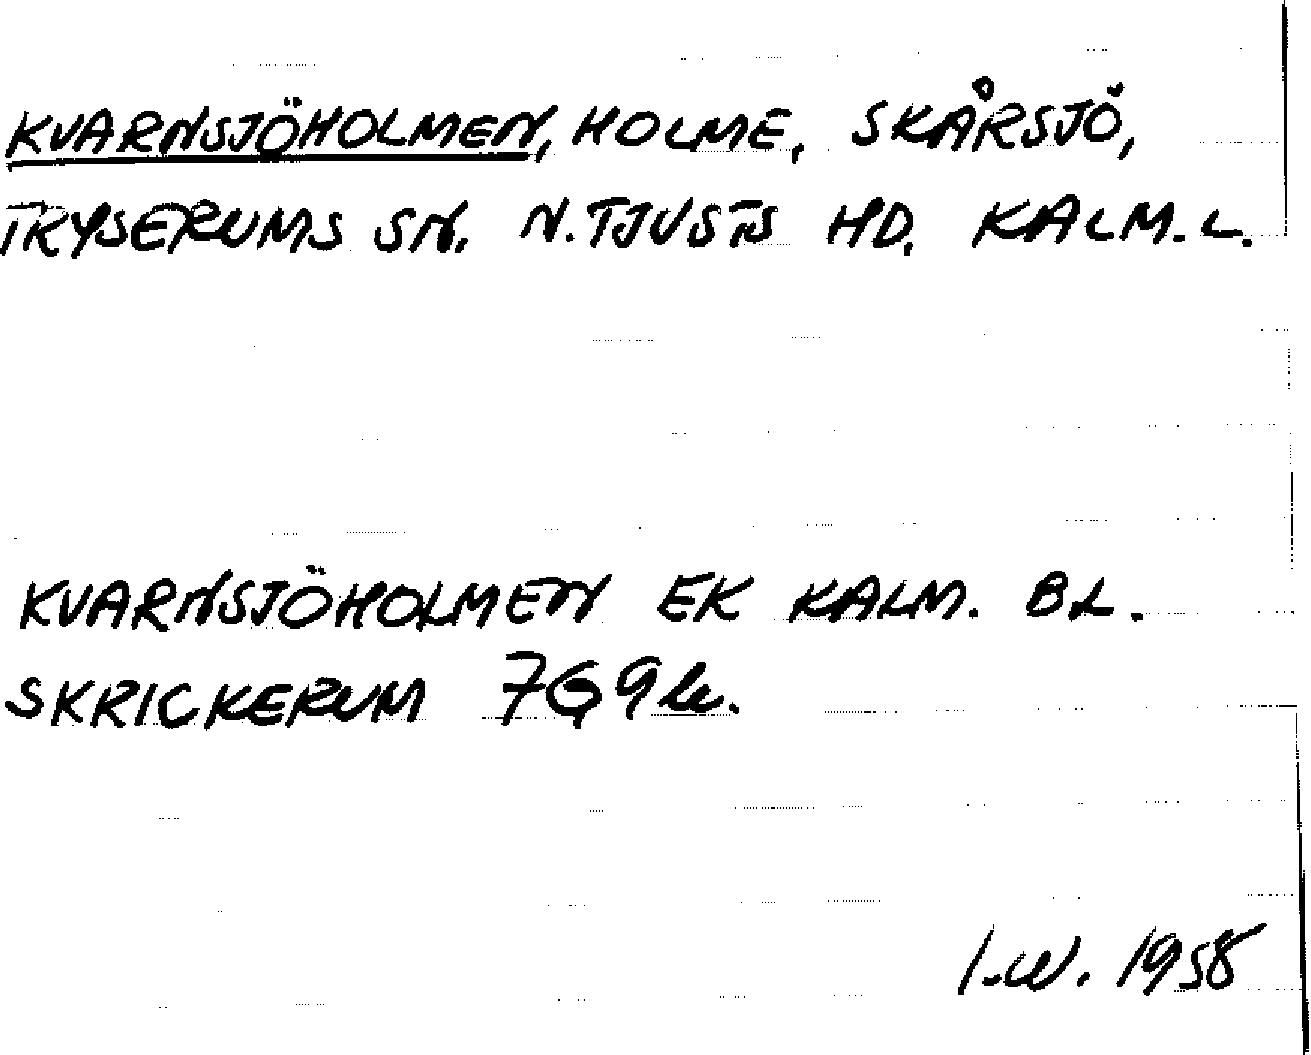 KVARNSJÖHOLMEN, HOLME, SKÅRSJÖ,
TRYSERUMS SN. N. TJUSTS HD. KALM. L.
KVARNSJÖHOLMEN EK KALM. BL.
SKRICKERUM 7G9b.
I.W. 1958